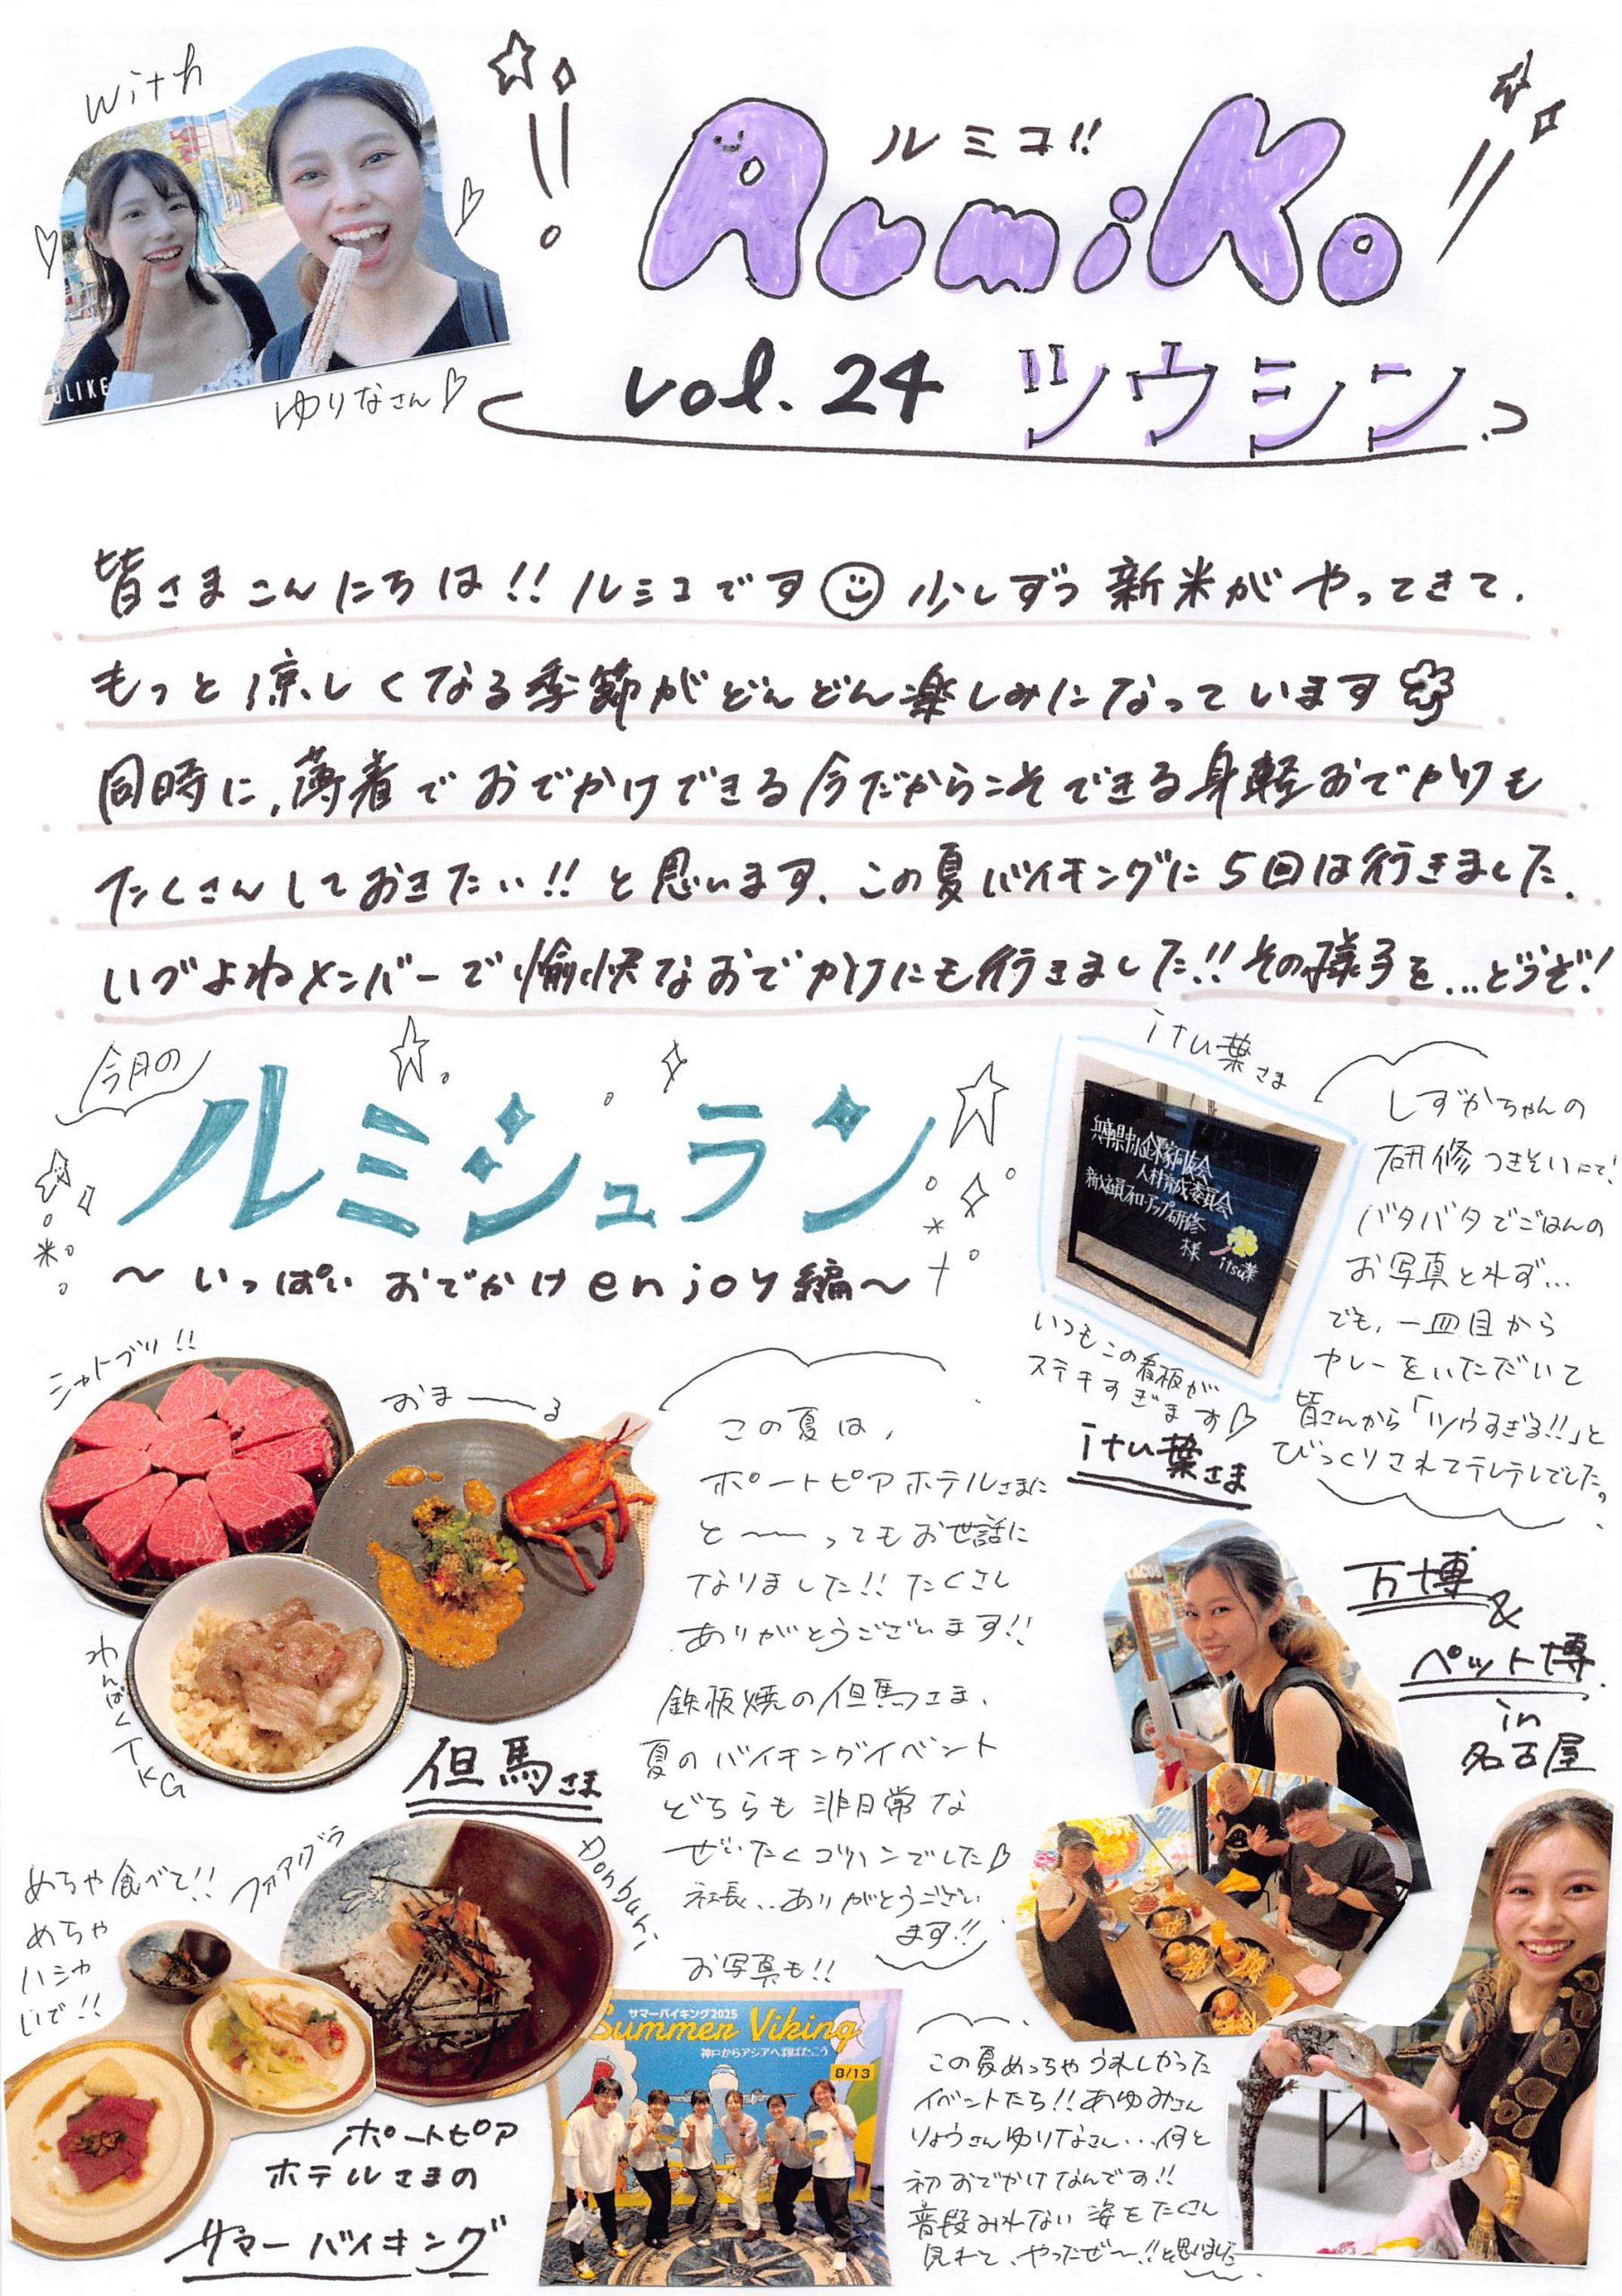 with
ULIKE
ゆりなさん♡
ルミコ!!
RumiKo
vol.24 ツウシン
皆さまこんにちは!!ルミコです☺少しずつ新米がやってきて、
もっと涼しくなる季節がどんどん楽しみになっています
同時に、薄着でおでかけできる今だからこそできる身軽おでかけも
たくさんしておきたい!!と思います、この夏バイキングに5回は行きました、
いづよねメンバーで愉快なおでかけにも行きました!!その様子を...どうぞ!
今月の
ルミシュラン
～いっぱいおでかけenjoy編～
itu葉さま
兵庫県中小企業家同友会
人材育成委員会
新入社員フォローアップ研修
様
itsu葉
いつもこの看板が
ステキすぎます♡
itu葉さま
しずかちゃんの
研修つきそいにて!
バタバタでごはんの
お写真とれず...
でも、一皿目から
カレーをいただいて
皆さんから「ツウすぎる!!」と
びっくりされてテレテレでした。
シャトブリ!!
おまーーる
わんぱくTKG
但馬さま
この夏は、
ポートピアホテルさまに
と〜〜ってもお世話に
なりました!!たくさん
ありがとうございます!!
鉄板焼の但馬さま、
夏のバイキングイベント
どちらも非日常な
ぜいたくゴハンでした♡
社長...ありがとうござい
ます!!
お写真も!!
めちゃ食べて!!
めちゃ
ハシャ
いで!!
フォアグラ
Donburi
ポートピア
ホテルさまの
サマーバイキング
サマーバイキング2025
Summer Viking
神戸からアジアへ羽ばたこう
8/13
万博&
ペット博
in
名古屋
この夏めっちゃうれしかった
イベントたち!!あゆみさん
りょうさんゆりなさん...何と
初おでかけなんです!!
普段みれない姿をたくさん
見れて、やったぜ〜!!と思いました